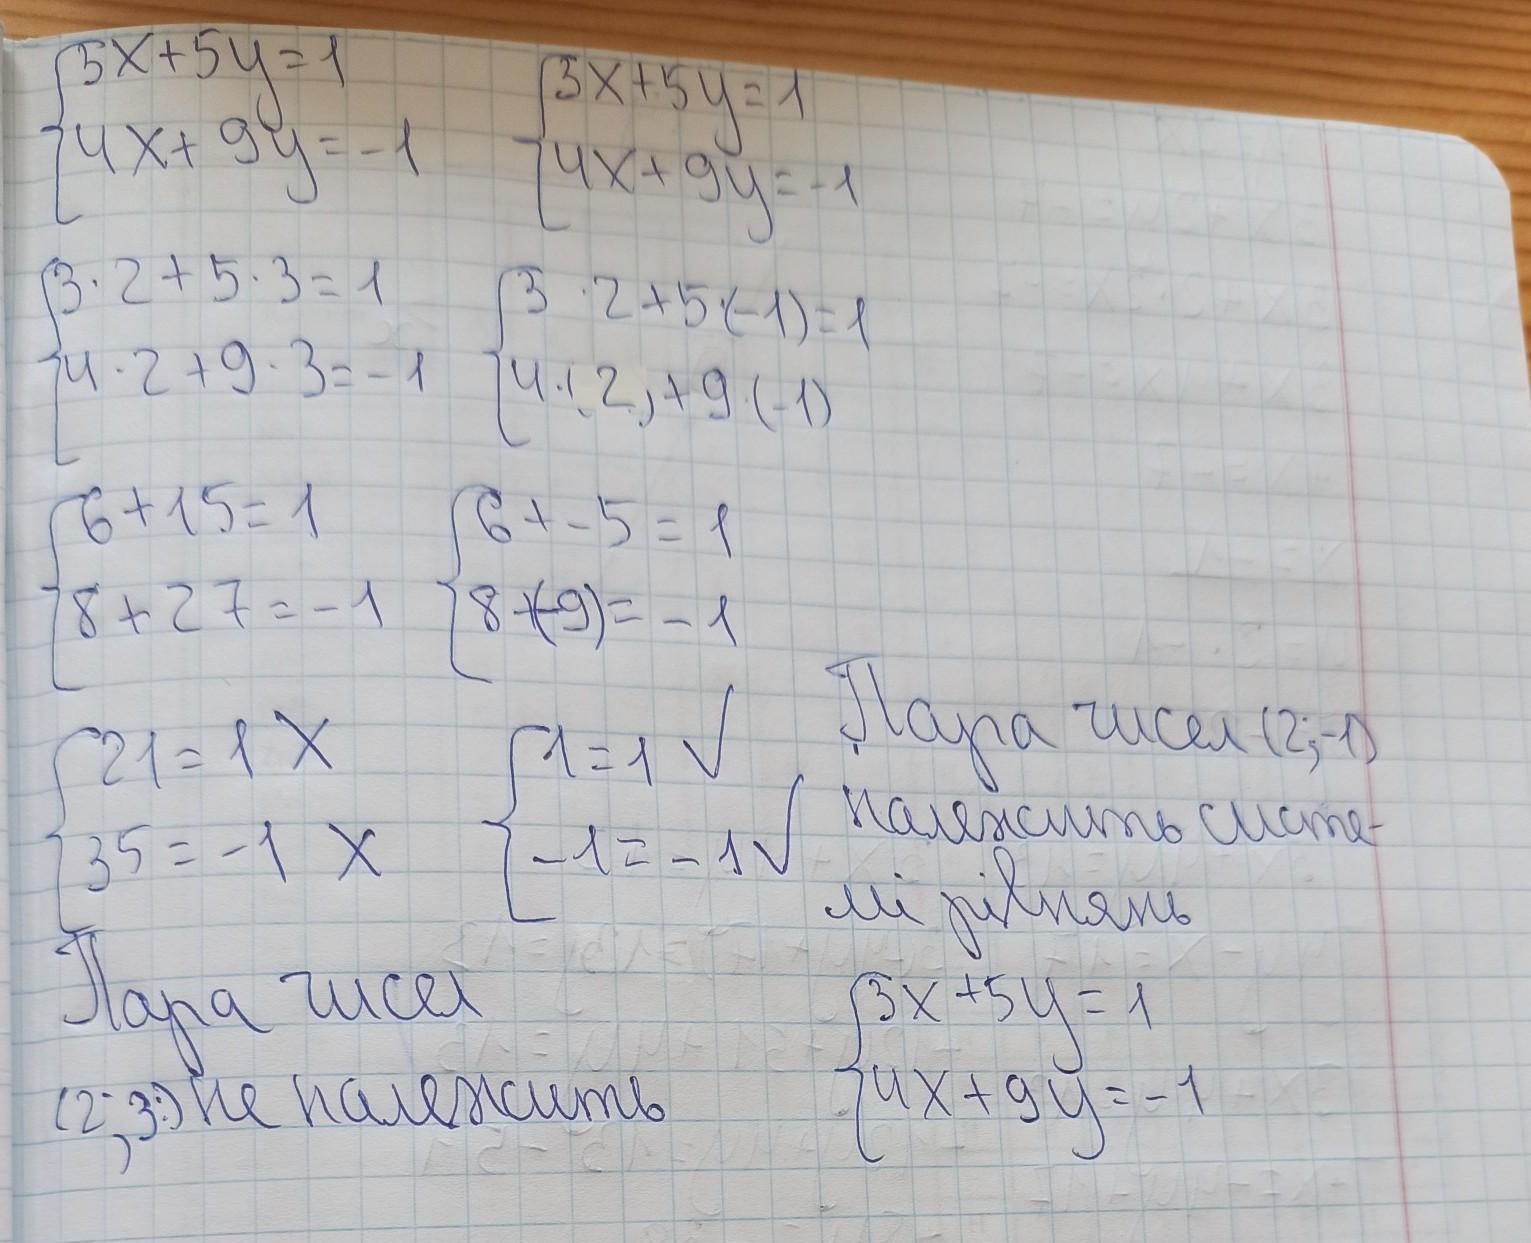 3x+5y=1
4x+9y=-1
3x+5y=1
4x+9y=-1
3·2+5·3=1
4·2+9·3=-1
3·2+5·(-1)=1
4·(2)+9·(-1)
6+15=1
8+27=-1
6+-5=1
8+(-9)=-1
21=1 X
35=-1 X
1=1 √
-1=-1 √
Пара чисел (2;-1)
належить систе-
мі рівнянь
Пара чисел
(2;3) не належить
3x+5y=1
4x+9y=-1